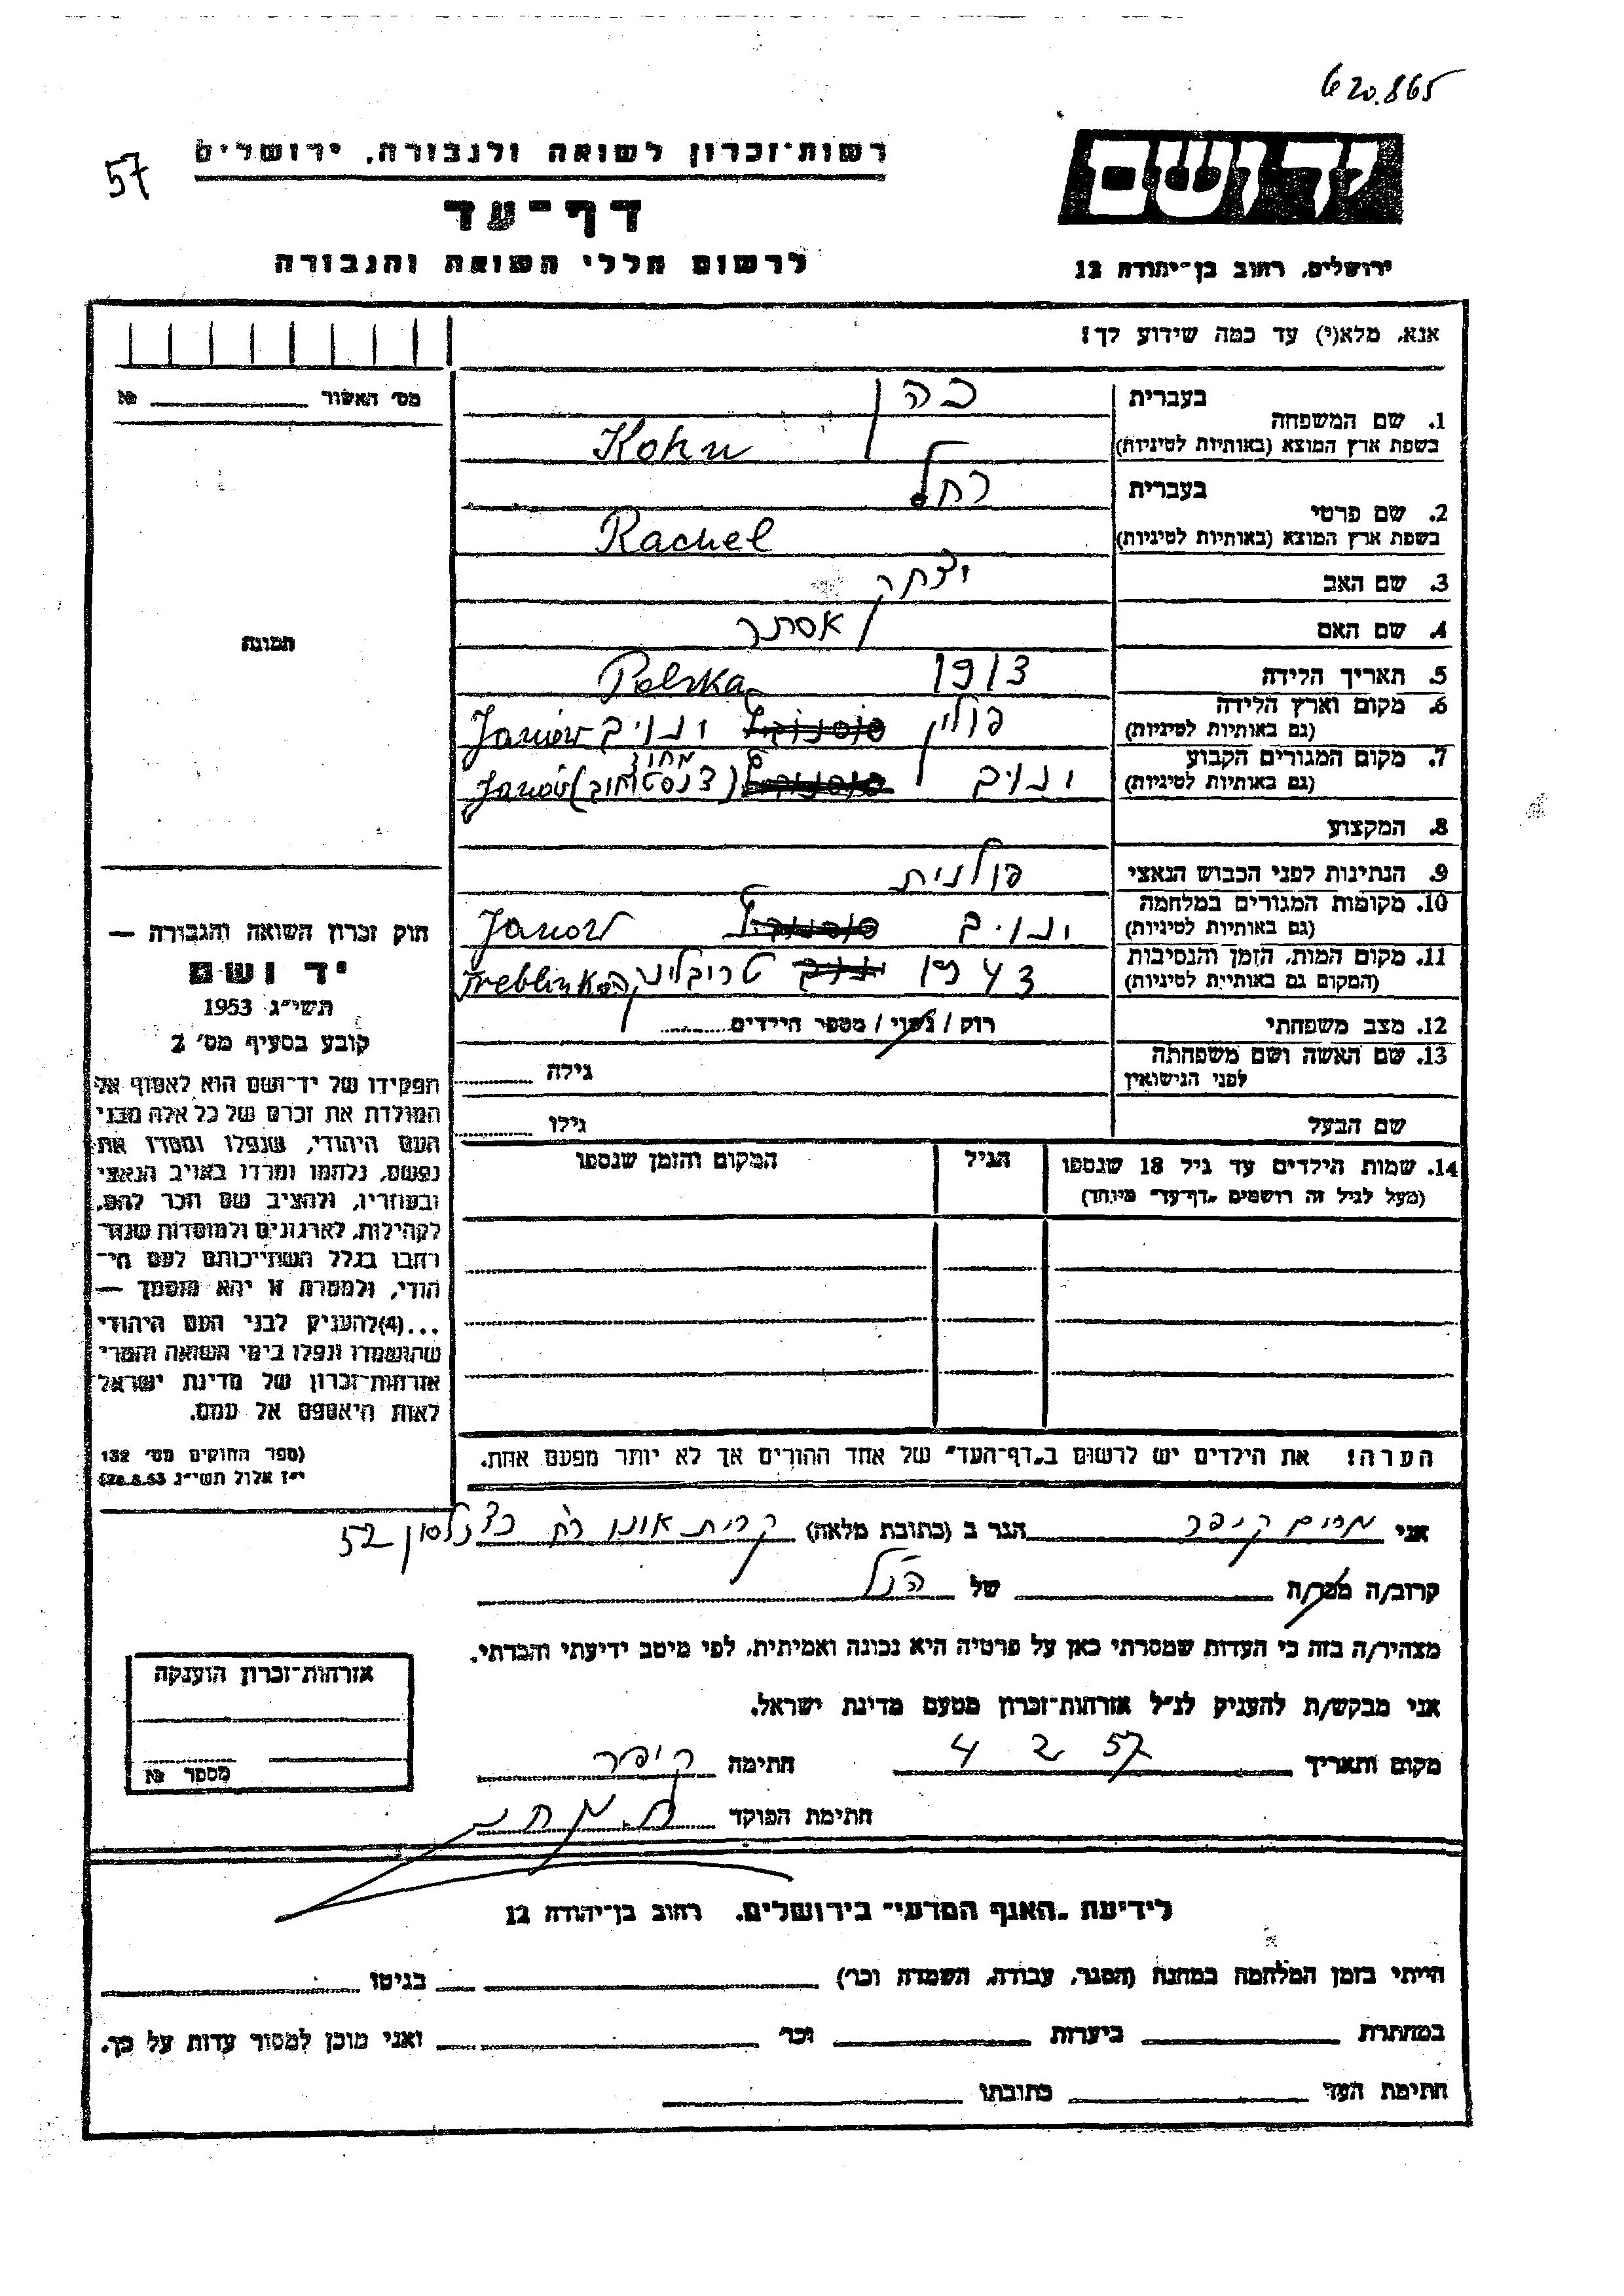 620.865
57
רשות־זכרון לשואה ולגבורה, ירושלים
יד ושם
דף־עד
לרשום חללי השואה והגבורה
ירושלים, רחוב בן־יהודה 12
אנא, מלא(י) עד כמה שידוע לך!
מס׳ האשור №
1. שם המשפחה
בעברית כהן
בשפת ארץ המוצא (באותיות לטיניות) Kohn
2. שם פרטי
בעברית רחל
בשפת ארץ המוצא (באותיות לטיניות) Rachel
3. שם האב יצחק
4. שם האם אסתר
תמונה
5. תאריך הלידה 1913
Polska
6. מקום וארץ הלידה
(גם באותיות לטיניות) פולין ינוב Janów
7. מקום המגורים הקבוע
(גם באותיות לטיניות) ינוב (מחוז צ'נסטחוב) Janów
8. המקצוע
9. הנתינות לפני הכבוש הנאצי פולנית
10. מקומות המגורים במלחמה
(גם באותיות לטיניות) ינוב Janow
11. מקום המות, הזמן והנסיבות
(המקום גם באותיות לטיניות) 1943 טרובלינקה Treblinka
12. מצב משפחתי רוק / נשוי / מספר הילדים
13. שם האשה ושם משפחתה
לפני הנישואין גילה
שם הבעל גילו
14. שמות הילדים עד גיל 18 שנספו
(מעל לגיל זה רושמים „דף־עד״ מיוחד)
הגיל
המקום והזמן שנספו
הערה! את הילדים יש לרשום ב„דף־העד״ של אחד ההורים אך לא יותר מפעם אחת.
חוק זכרון השואה והגבורה —
יד ושם
תשי״ג 1953
קובע בסעיף מס׳ 2
תפקידו של יד־ושם הוא לאסוף אל
המולדת את זכרם של כל אלה מבני
העם היהודי, שנפלו ומסרו את
נפשם, נלחמו ומרדו באויב הנאצי
ובעוזריו, ולהציב שם וזכר להם,
לקהילות, לארגונים ולמוסדות שנח־
רבו בגלל השתייכותם לעם הי־
הודי, ולמטרה זו יהא מוסמך —
...(4)להעניק לבני העם היהודי
שהושמדו ונפלו בימי השואה והמרי
אזרחות־זכרון של מדינת ישראל
לאות היאספם אל עמם.
(ספר החוקים מס׳ 132
י״ז אלול תשי״ג 28.8.53)
אני מרים קיפר הגר ב (כתובת מלאה) קרית אונו רח' כצנלסון 52
קרוב/ה מכר/ה של הנ״ל
מצהיר/ה בזה כי העדות שמסרתי כאן על פרטיה היא נכונה ואמיתית, לפי מיטב ידיעתי והכרתי.
אני מבקש/ת להעניק לנ״ל אזרחות־זכרון מטעם מדינת ישראל.
מקום ותאריך 4 2 57 חתימה קיפר
חתימת הפוקד
אזרחות־זכרון הוענקה
מספר №
לידיעת „האגף המדעי״ בירושלים, רחוב בן־יהודה 12
הייתי בזמן המלחמה במחנה (הסגר, עבודה, השמדה וכו׳) בגיטו
במחתרת ביערות וכו׳ ואני מוכן למסור עדות על כך.
חתימת העד כתובתו